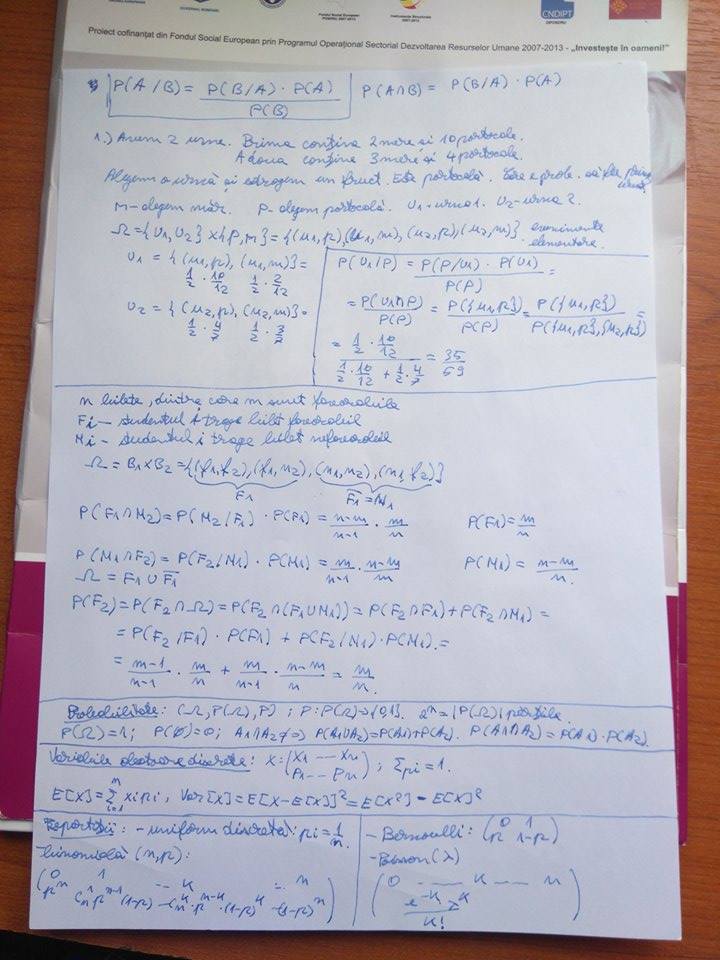 GUVERNUL ROMÂNIEI
Fondul Social European
POSDRU 2007-2013
Instrumente Structurale
2007-2013
CNDIPT
OIPOSDRU
Proiect cofinanțat din Fondul Social European prin Programul Operațional Sectorial Dezvoltarea Resurselor Umane 2007-2013 - „Investește în oameni!"
P(A/B) = P(B/A) · P(A) / P(B) P(A∩B) = P(B/A) · P(A)
1.) Avem 2 urne. Prima conține 2 mere și 10 portocale.
A doua conține 3 mere și 4 portocale.
Alegem o urnă și extragem un fruct. Este portocală. Care e prob. să fie prima urnă
M- alegem măr. P- alegem portocală. U1 = urna 1. U2 = urna 2.
Ω = {U1, U2} × {P, M} = {(u1,p), (u1,m), (u2,p), (u2,m)} evenimente
elementare.
U1 = {(u1,p), (u1,m)} =
1/2 · 10/12 1/2 · 2/12
U2 = {(u2,p), (u2,m)} =
1/2 · 4/7 1/2 · 3/7
P(U1/P) = P(P/U1) · P(U1) / P(P) =
= P(U1∩P) / P(P) = P({u1,p}) / P(P) = P({u1,p}) / P({u1,p},{u2,p}) =
= 1/2 · 10/12 / 1/2 · 10/12 + 1/2 · 4/7 = 35/59
n bilete, dintre care m sunt favorabile
Fi - studentul i trage bilet favorabil
Ni - studentul i trage bilet nefavorabil
Ω = B1 × B2 = {(f1,f2), (f1,n2), (n1,n2), (n1,f2)}
F1 F̄1 = N1
P(F1∩N2) = P(N2/F1) · P(F1) = n-m/n-1 · m/n P(F1) = m/n
P(N1∩F2) = P(F2/N1) · P(N1) = m/n-1 · n-m/n P(N1) = n-m/n.
Ω = F1 ∪ F̄1
P(F2) = P(F2∩Ω) = P(F2∩(F1∪N1)) = P(F2∩F1) + P(F2∩N1) =
= P(F2/F1) · P(F1) + P(F2/N1) · P(N1) =
= m-1/n-1 · m/n + m/n-1 · n-m/n = m/n
Probabilitate: (Ω, P(Ω), P) ; P: P(Ω) → [0,1]. 2ⁿ = |P(Ω)| părțile.
P(Ω) = 1; P(∅) = 0; A1∩A2 = ∅ P(A1∪A2) = P(A1) + P(A2). P(A1∩A2) = P(A1) · P(A2)
Variabile aleatoare discrete: X: (x1 --- xn / p1 --- pn) ; Σpi = 1.
E[X] = Σ xi pi, Var[X] = E[X-E[X]]² = E[X²] - E[X]²
Repartiții: - uniform discretă: pi = 1/n.
binomială (n,p):
(0 1 -- k -- n
pⁿ C¹n pⁿ⁻¹(1-p) - Cᵏn · pⁿ⁻ᵏ · (1-p)ᵏ - (1-p)ⁿ)
- Bernoulli: (0 1 / p 1-p)
- Poisson(λ)
(0 --- k --- n
e⁻ᵏ λᵏ / k!)